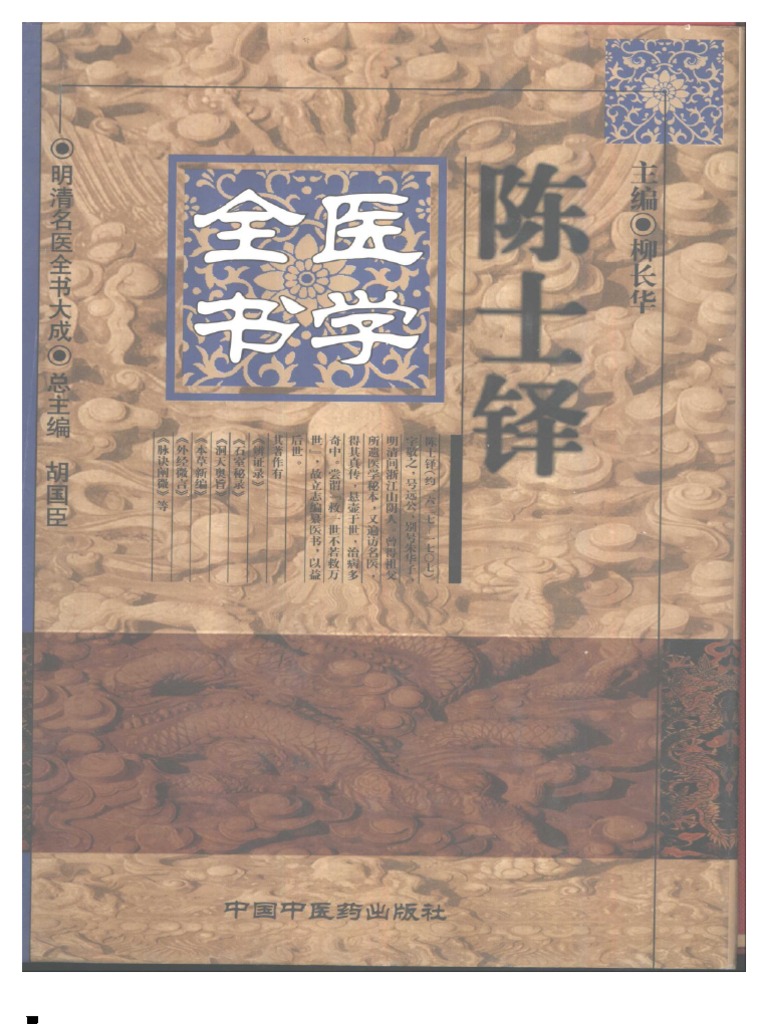 主编◉柳长华
陈士铎
医学
全书
陈士铎(约一六二七—一七〇七)
字敬之,号远公,别号朱华子。
明清间浙江山阴人。曾得祖父
所遗医学秘本,又遍访名医,
得其真传,悬壶于世,治病多
奇中。尝谓“救一世不若救万
世”,故立志编纂医书,以益
后世。
其著作有
《辨证录》
《石室秘录》
《洞天奥旨》
《本草新编》
《外经微言》
《脉诀阐微》等
◉明清名医全书大成◉总主编 胡国臣
中国中医药出版社